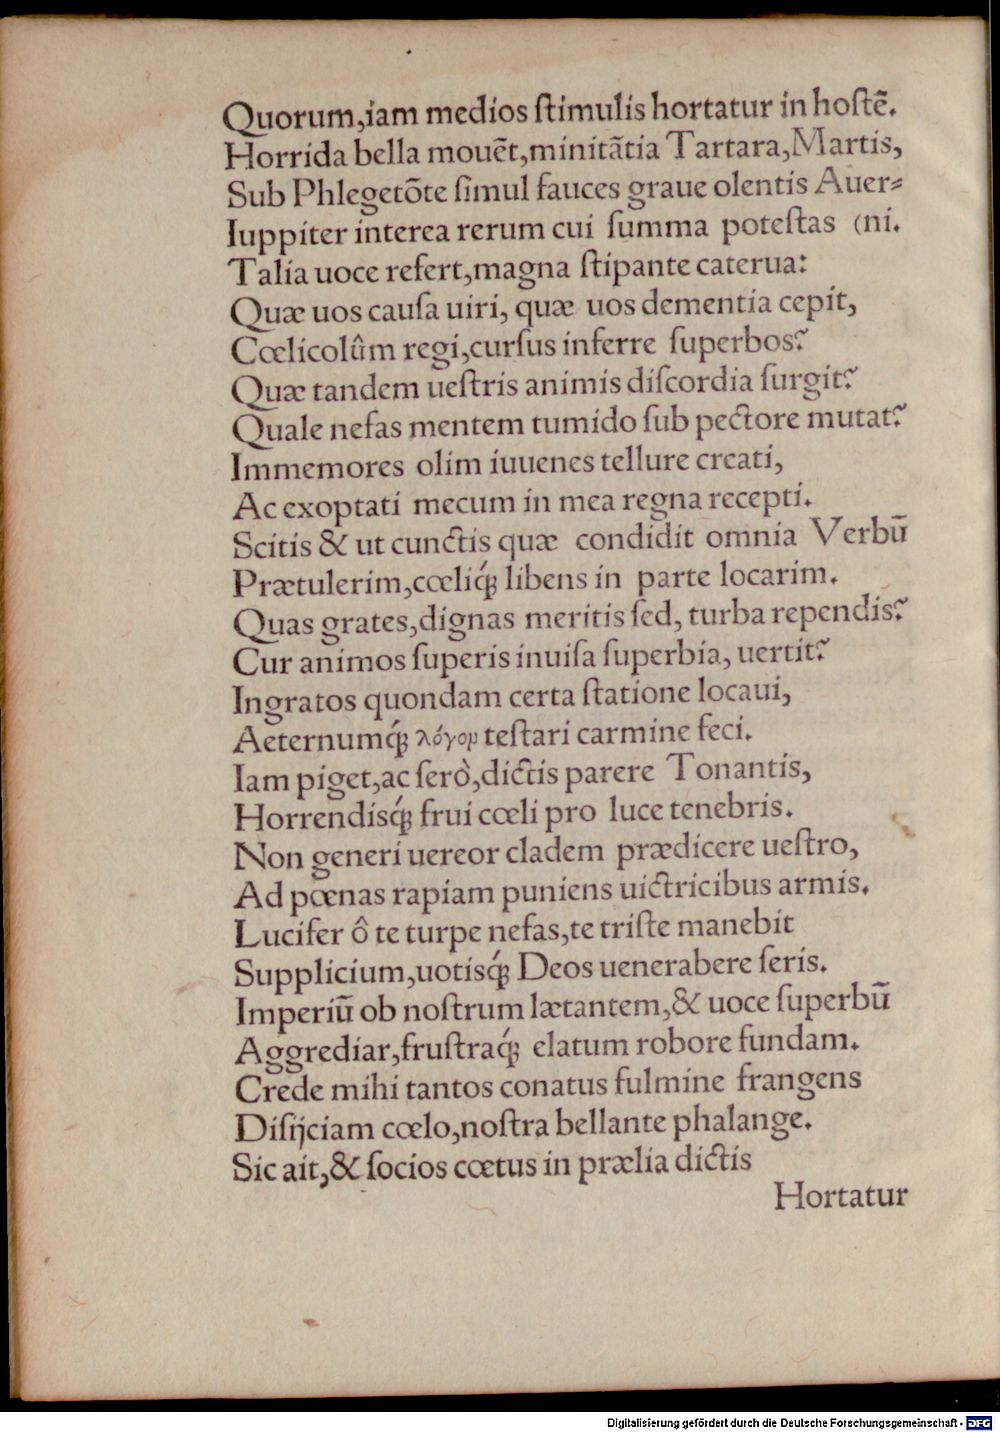 Quorum,iam medios ſtimulis hortatur in hoſtē.
Horrida bella mouēt,minitātia Tartara,Martis,
Sub Phlegetōte ſimul fauces graue olentis Auer⸗
Iuppiter interea rerum cui ſumma poteſtas (ni.
Talia uoce refert,magna ſtipante caterua:
Quæ uos cauſa uiri, quæ uos dementia cepit,
Cœlicolûm regi,curſus inferre ſuperbos?
Quæ tandem ueſtris animis diſcordia ſurgit?
Quale nefas mentem tumido ſub pectore mutat?
Immemores olim iuuenes tellure creati,
Ac exoptati mecum in mea regna recepti.
Scitis & ut cunctis quæ condidit omnia Verbū
Prætulerim,cœliq́ꝫ libens in parte locarim.
Quas grates,dignas meritis ſed, turba rependis?
Cur animos ſuperis inuiſa ſuperbia, uertit?
Ingratos quondam certa ſtatione locaui,
Aeternumq́ꝫ λόγομ teſtari carmine feci.
Iam piget,ac ſerò,dictis parere Tonantis,
Horrendisq́ꝫ frui cœli pro luce tenebris.
Non generi uereor cladem prædicere ueſtro,
Ad pœnas rapiam puniens uictricibus armis.
Lucifer ô te turpe nefas,te triſte manebit
Supplicium,uotisq́ꝫ Deos uenerabere ſeris.
Imperiū ob noſtrum lætantem,& uoce ſuperbū
Aggrediar,fruſtraq́ꝫ elatum robore fundam.
Crede mihi tantos conatus fulmine frangens
Diſijciam cœlo,noſtra bellante phalange.
Sic ait,& ſocios cœtus in prælia dictis
Hortatur
Digitalisierung gefördert durch die Deutsche Forschungsgemeinschaft - DFG